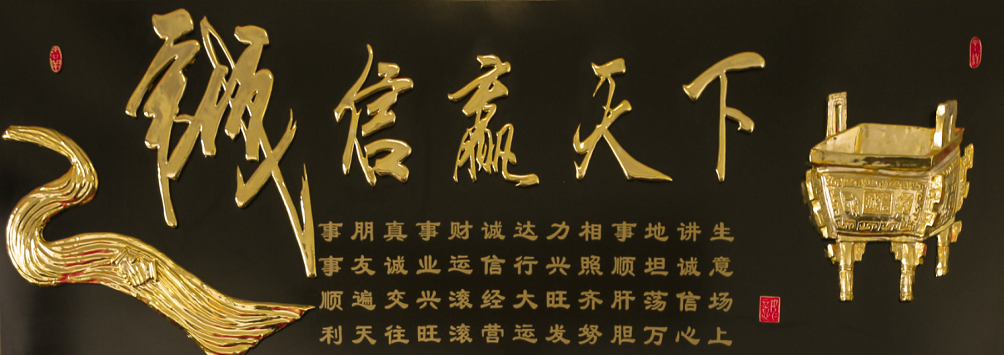 誠信赢天下
生意场上
讲诚信心
地坦荡万
事顺肝胆
相照齐努
力兴旺发
达行大运
诚信经营
财运滚滚
事业兴旺
真诚交往
朋友遍天
事事顺利